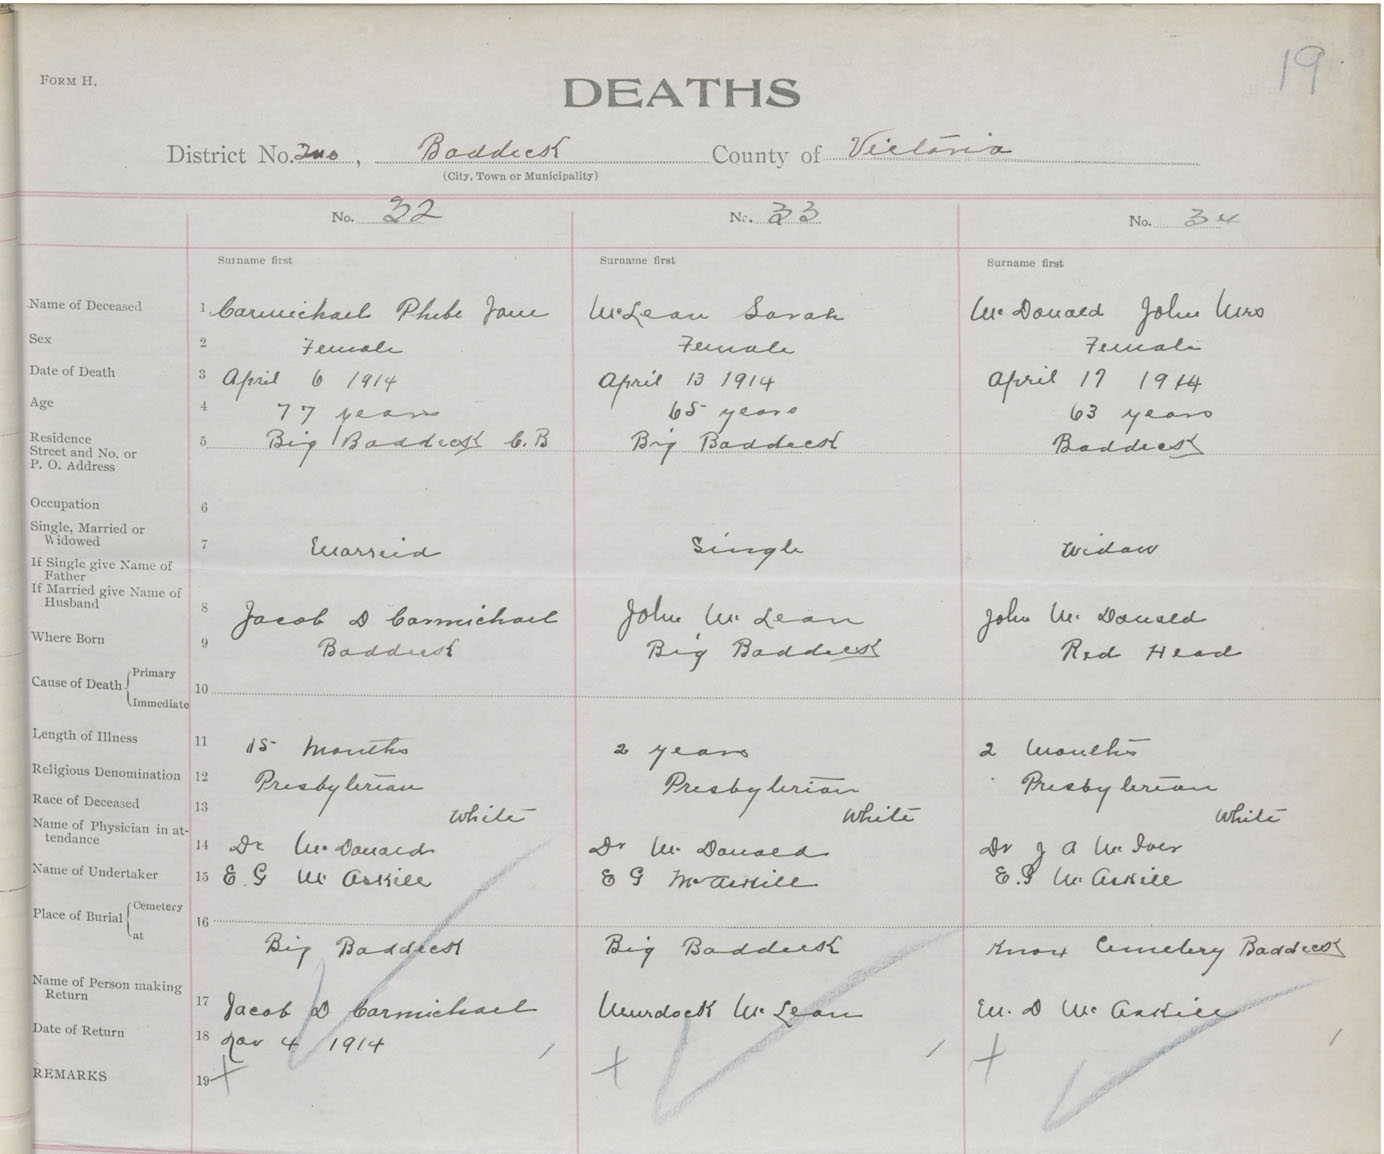 19
FORM H.
DEATHS
District No. Two, Baddeck County of Victoria
(City, Town or Municipality)
No. 32 No. 33 No. 34
Surname first Surname first Surname first
Name of Deceased 1 Carmichael Phebe Jane McLean Sarah McDonald John Mrs
Sex 2 Female Female Female
Date of Death 3 April 6 1914 April 13 1914 April 17 1914
Age 4 77 years 65 years 63 years
Residence
Street and No. or
P. O. Address 5 Big Baddeck C.B Big Baddeck Baddeck
Occupation 6
Single, Married or
Widowed 7 Marreid Single Widow
If Single give Name of
Father
If Married give Name of
Husband 8 Jacob D Carmichael John McLean John McDonald
Where Born 9 Baddeck Big Baddeck Red Head
Cause of Death { Primary
Immediate 10
Length of Illness 11 15 Months 2 years 2 Months
Religious Denomination 12 Presbyterian Presbyterian Presbyterian
Race of Deceased 13 White White White
Name of Physician in at-
tendance 14 Dr McDonald Dr McDonald Dr J A McIver
Name of Undertaker 15 E. G McAskill E G McAskill E. G McAskill
Place of Burial { Cemetery
at 16 Big Baddeck Big Baddeck Knox Cemetery Baddeck
Name of Person making
Return 17 Jacob D Carmichael Murdock McLean M. D McAskill
Date of Return 18 Nov 4 1914
REMARKS 19